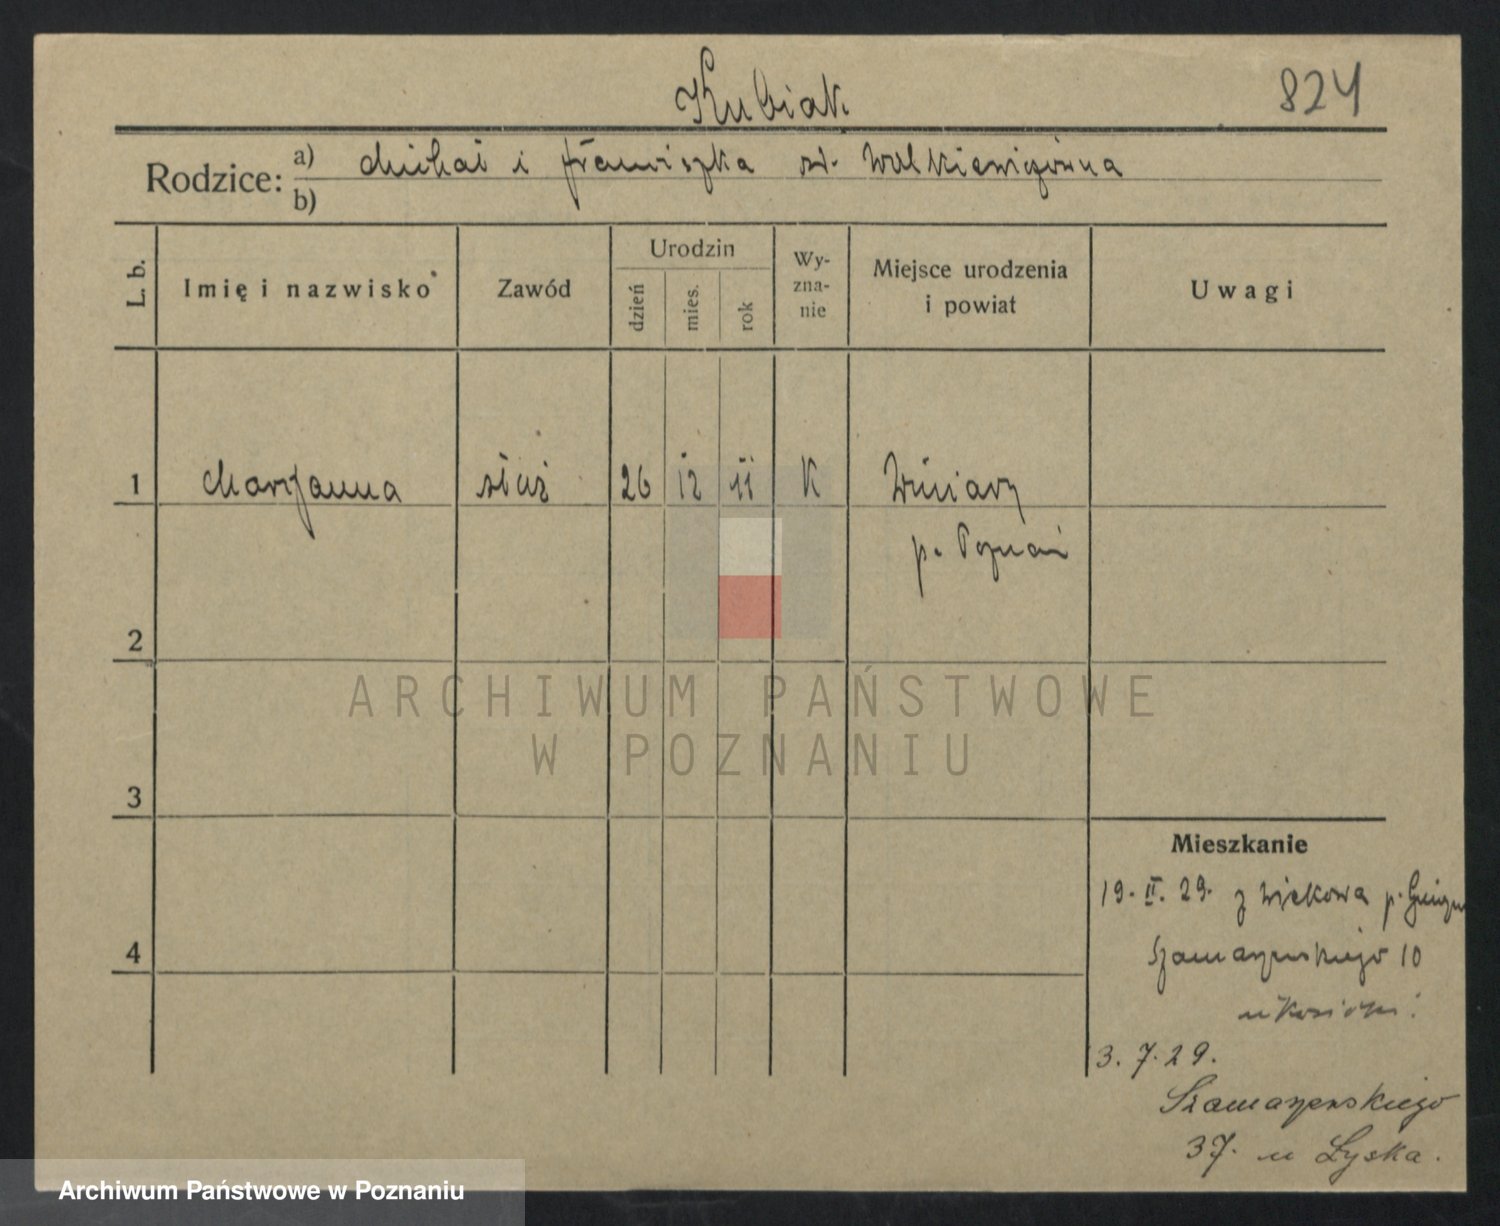 Kubiak
824
Rodzice: a) Michał i Franciszka z d. Walkiewiczówna
b)
L. b.
Imię i nazwisko
Zawód
Urodzin
dzień
mies.
rok
Wy-
zna-
nie
Miejsce urodzenia
i powiat
Uwagi
1 Maryanna służ 26 12 11 K Winiary
p. Poznań
2
3
4
Mieszkanie
19. II. 29. z p.
Szamarzewskiego 10
3. 7. 29.
Szamarzewskiego
37. u Łyska.
ARCHIWUM PAŃSTWOWE
W POZNANIU
Archiwum Państwowe w Poznaniu